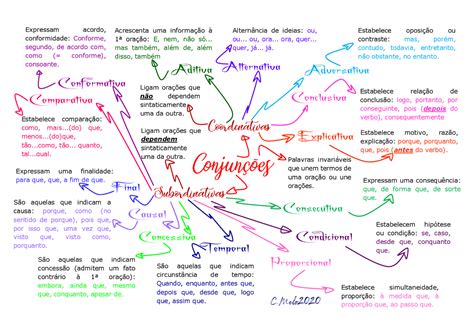 Expressam acordo,
conformidade: Conforme,
segundo, de acordo com,
como (= conforme),
consoante.
Acrescenta uma informação à
1ª oração: E, nem, não só...
mas também, além de, além
disso, também
Alternância de ideias: ou,
ou... ou, ora... ora, quer...
quer, já... já.
Estabelece oposição ou
contraste: mas, porém,
contudo, todavia, entretanto,
não obstante, no entanto.
Conformativa
Aditiva
Alternativa
Adversativa
Comparativa
Conclusiva
Ligam orações que
não dependem
sintaticamente
uma da outra.
Estabelece relação de
conclusão: logo, portanto, por
conseguinte, pois (depois do
verbo), consequentemente
Estabelece comparação:
como, mais...(do) que,
menos...(do) que,
tão...como/quanto,
tal...qual.
Ligam orações que
dependem
sintaticamente
uma da outra.
Coordenativas
Explicativa
Estabelece motivo, razão,
explicação: porque, porquanto,
que, pois (antes do verbo).
Conjunções
Palavras invariáveis
que unem termos de
uma oração ou une
orações.
Expressam uma finalidade:
para que, a fim de que.
Final
Subordinativas
Expressam uma consequência:
que, de forma que, de sorte
que.
Consecutiva
São aquelas que indicam a
causa: porque, como (no
sentido de porque), pois que,
por isso que, uma vez que,
visto que, visto como,
porquanto.
Causal
Concessiva
Temporal
Condicional
Estabelecem hipótese
ou condição: se, caso,
desde que, conquanto
que.
Proporcional
São aquelas que indicam
concessão (admitem um fato
contrário à 1ª oração):
embora, ainda que, mesmo
que, conquanto, apesar de.
São aquelas que indicam
circunstância de tempo:
Quando, enquanto, antes que,
depois que, desde que, logo
que, assim que.
C.Melo2020
Estabelece simultaneidade,
proporção: à medida que, à
proporção que, ao passo que.